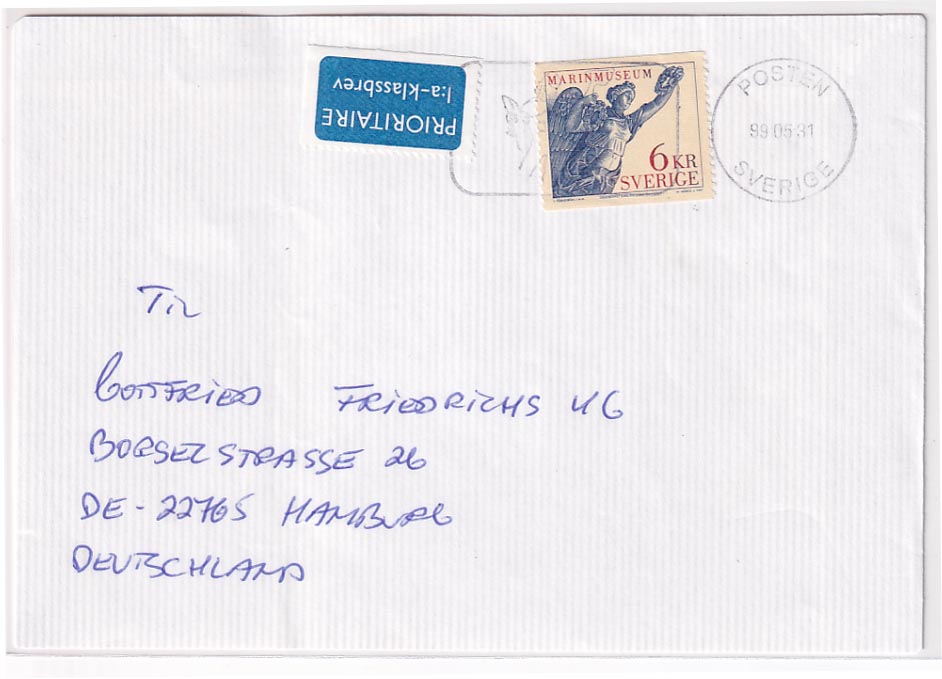 PRIORITAIRE
1:a-klassbrev
MARINMUSEUM
6 KR
SVERIGE
POSTEN
99.05.31
SVERIGE
Til
Gottfried FRIEDRICHS KG
BORSELSTRASSE 26
DE-22765 HAMBURG
DEUTSCHLAND